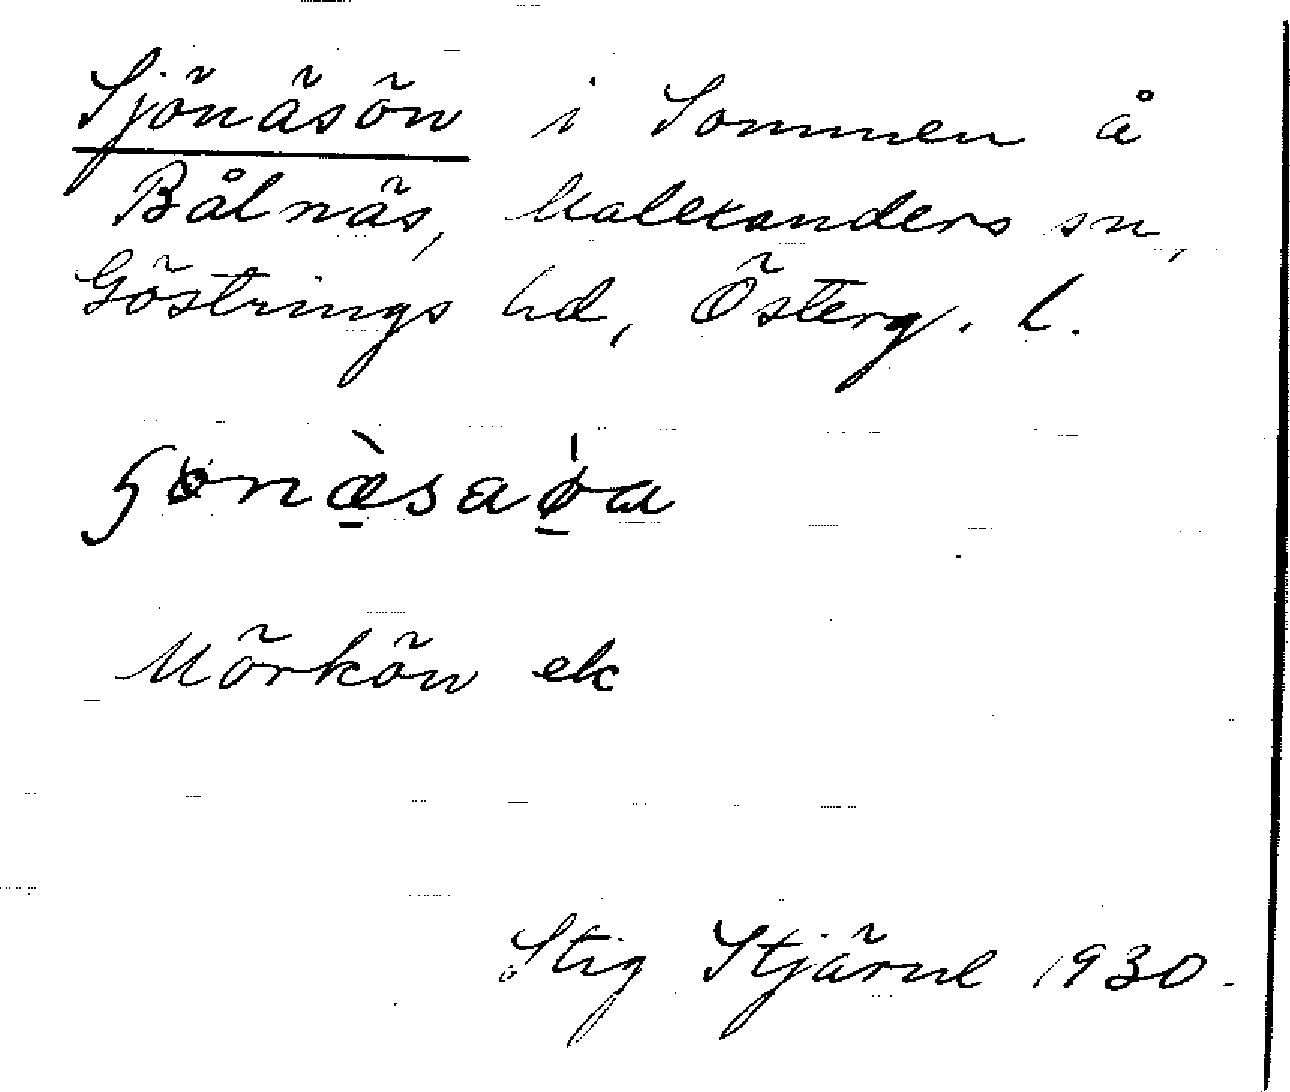 Sjönäsön i Sommen å
Bålnäs, Malexanders sn,
Göstrings hd, Österg. l.
Mörkön ek
Stig Stjärne 1930.